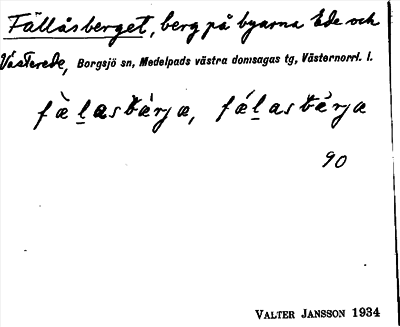 Fällåsberget, berg på byarna Ede och
Västerede, Borgsjö sn, Medelpads västra domsagas tg, Västernorrl. l.
90
VALTER JANSSON 1934